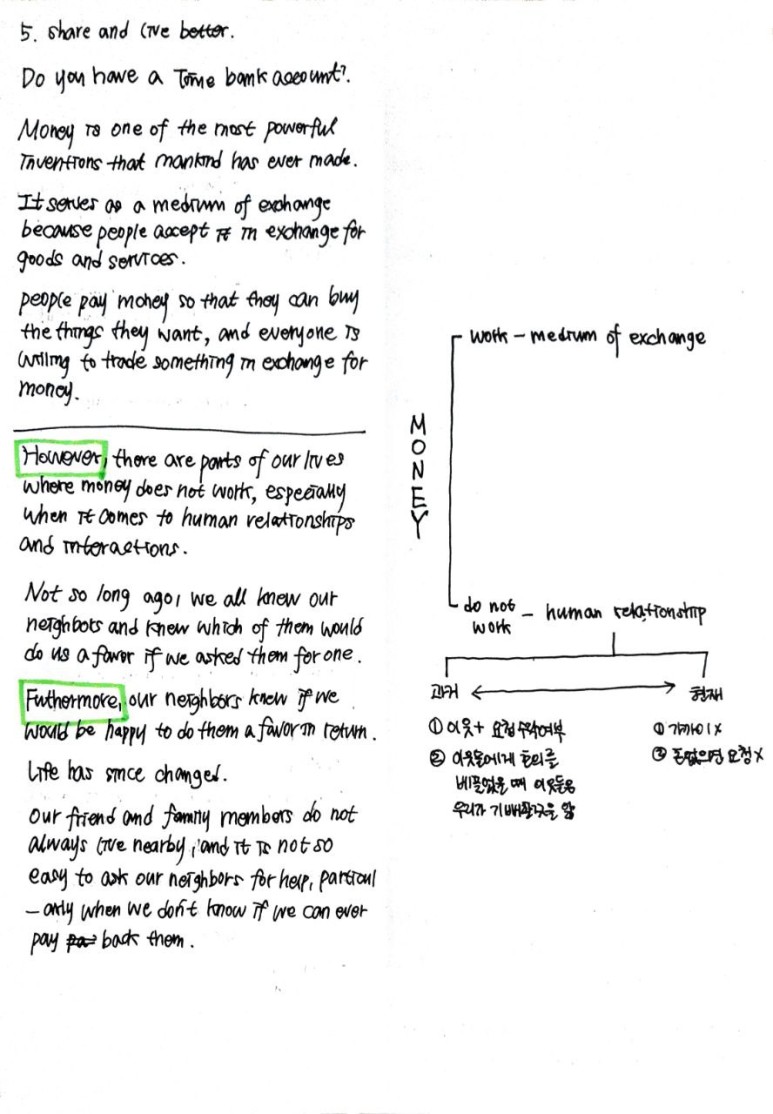 5. share and live better.
Do you have a Time bank account?
Money is one of the most powerful
inventions that mankind has ever made.
It serves as a medium of exchange
because people accept it in exchange for
goods and services.
people pay money so that they can buy
the things they want, and everyone is
willing to trade something in exchange for
money.
However, there are parts of our lives
where money does not work, especially
when it comes to human relationships
and interactions.
Not so long ago, we all knew our
neighbors and knew which of them would
do us a favor if we asked them for one.
Futhermore, our neighbors knew if we
would be happy to do them a favor in return.
Life has since changed.
Our friend and family members do not
always live nearby, and it is not so
easy to ask our neighbors for help, particul
-arly when we don't know if we can ever
pay back them.
MONEY
work - medium of exchange
do not
work - human relationship
과거 현재
① 이웃+ 요청 수락여부
② 이웃들에게 호의를
베풀었을 때 이웃들은
우리가 기뻐할것을 앎
① 가까이 X
② 돈없으면 요청 X